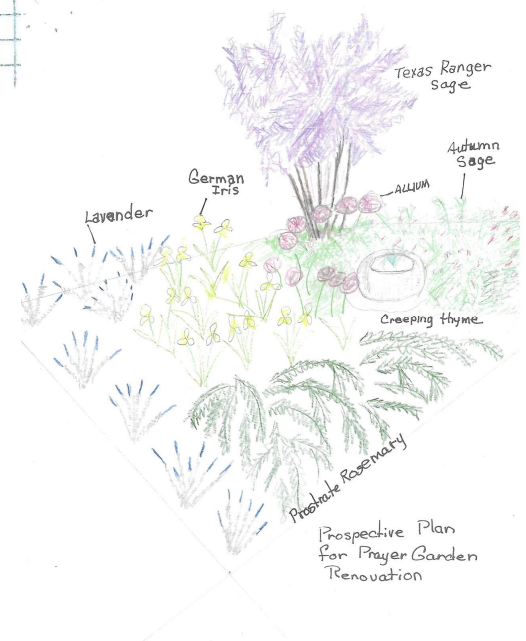 Texas Ranger
Sage
Autumn
Sage
German
Iris
ALLIUM
Lavender
Creeping thyme
Prostrate Rosemary
Prospective Plan
for Prayer Garden
Renovation